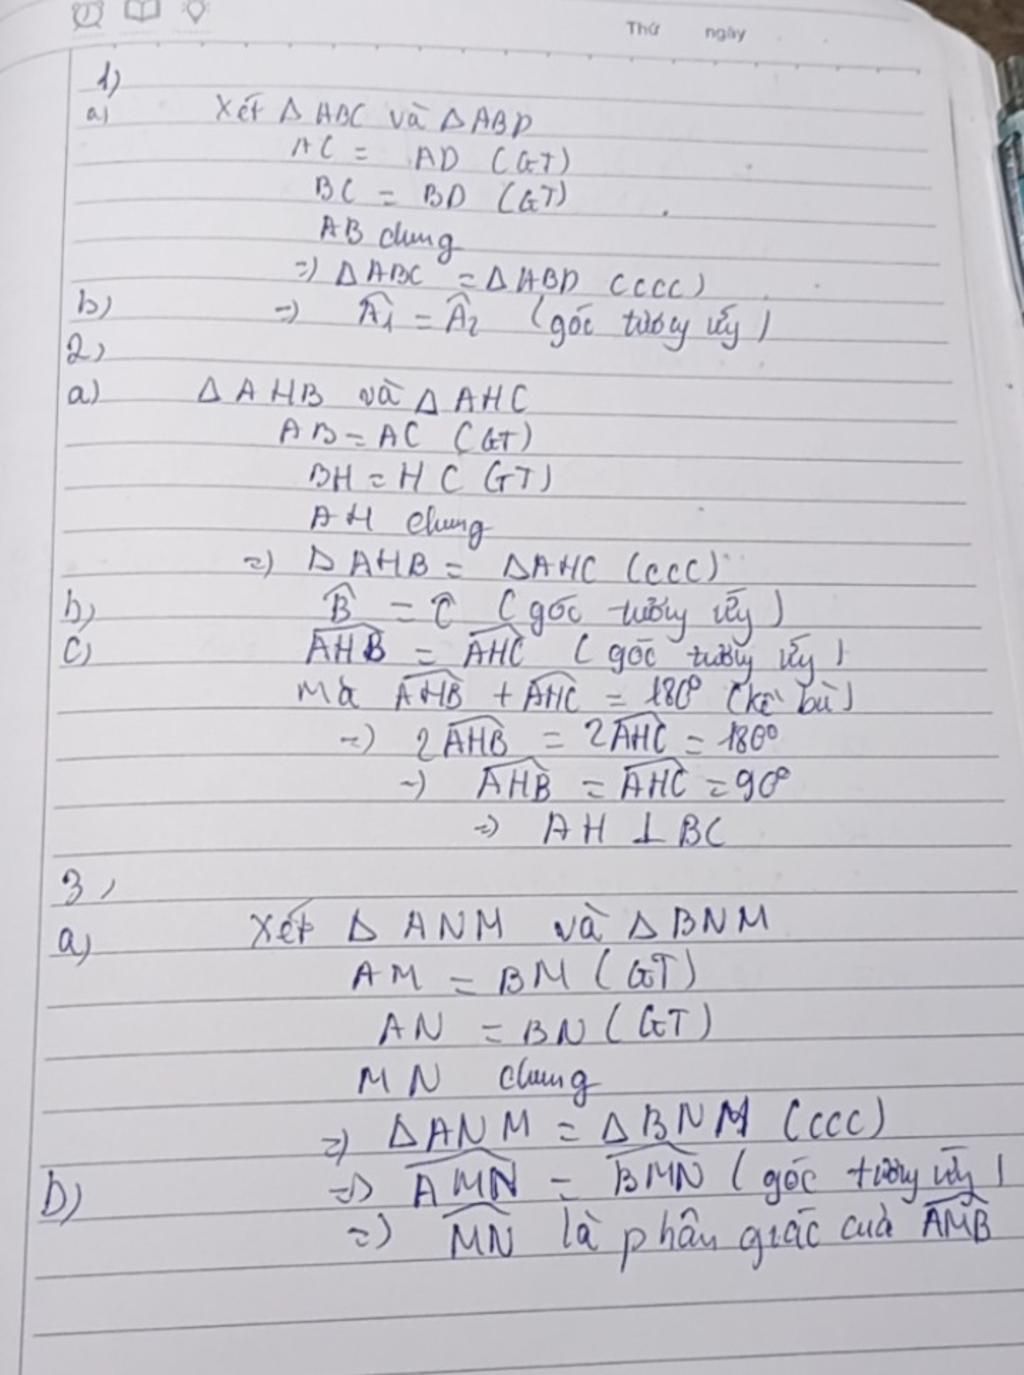 Thứ ngày
1)
a) Xét Δ ABC và Δ ABD
AC = AD (GT)
BC = BD (GT)
AB chung
=) Δ ABC = Δ ABD (ccc)
b) =) Â1 = Â2 (góc tương ứng)
2)
a) Δ AHB và Δ AHC
AB = AC (GT)
BH = HC (GT)
AH chung
=) Δ AHB = Δ AHC (ccc)
b) B̂ = Ĉ (góc tương ứng)
c) AHB = AHC (góc tương ứng)
Mà AHB + AHC = 180° (kề bù)
=) 2AHB = 2AHC = 180°
=) AHB = AHC = 90°
=) AH ⊥ BC
3)
a) Xét Δ ANM và Δ BNM
AM = BM (GT)
AN = BN (GT)
MN chung
=) Δ ANM = Δ BNM (ccc)
b) =) AMN = BMN (góc tương ứng)
=) MN là phân giác cuả AMB